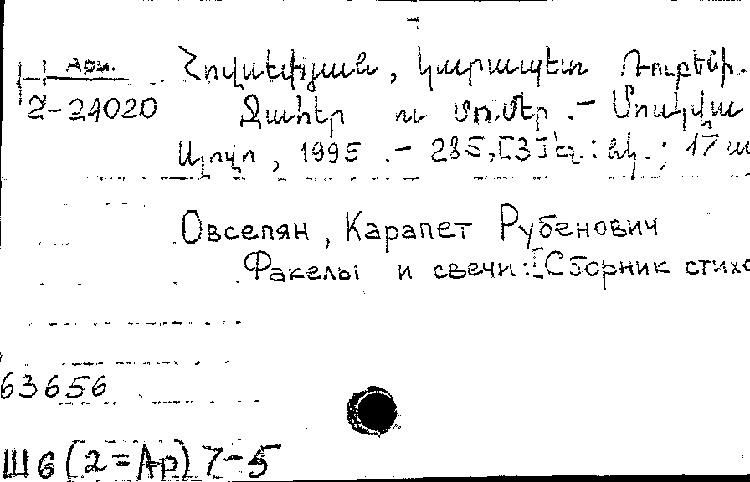 Арм.
2-24020
Հովսեփյան, Կարապետ Ռուբենի.
Ջահեր ու մոմեր .- Մոսկվա
1995 .- 285,[3]էջ : նկ. ; 17
Овсепян, Карапет Рубенович
Факелы и свечи:[Сборник стихо
63656
Ш6(2=Ар)7-5